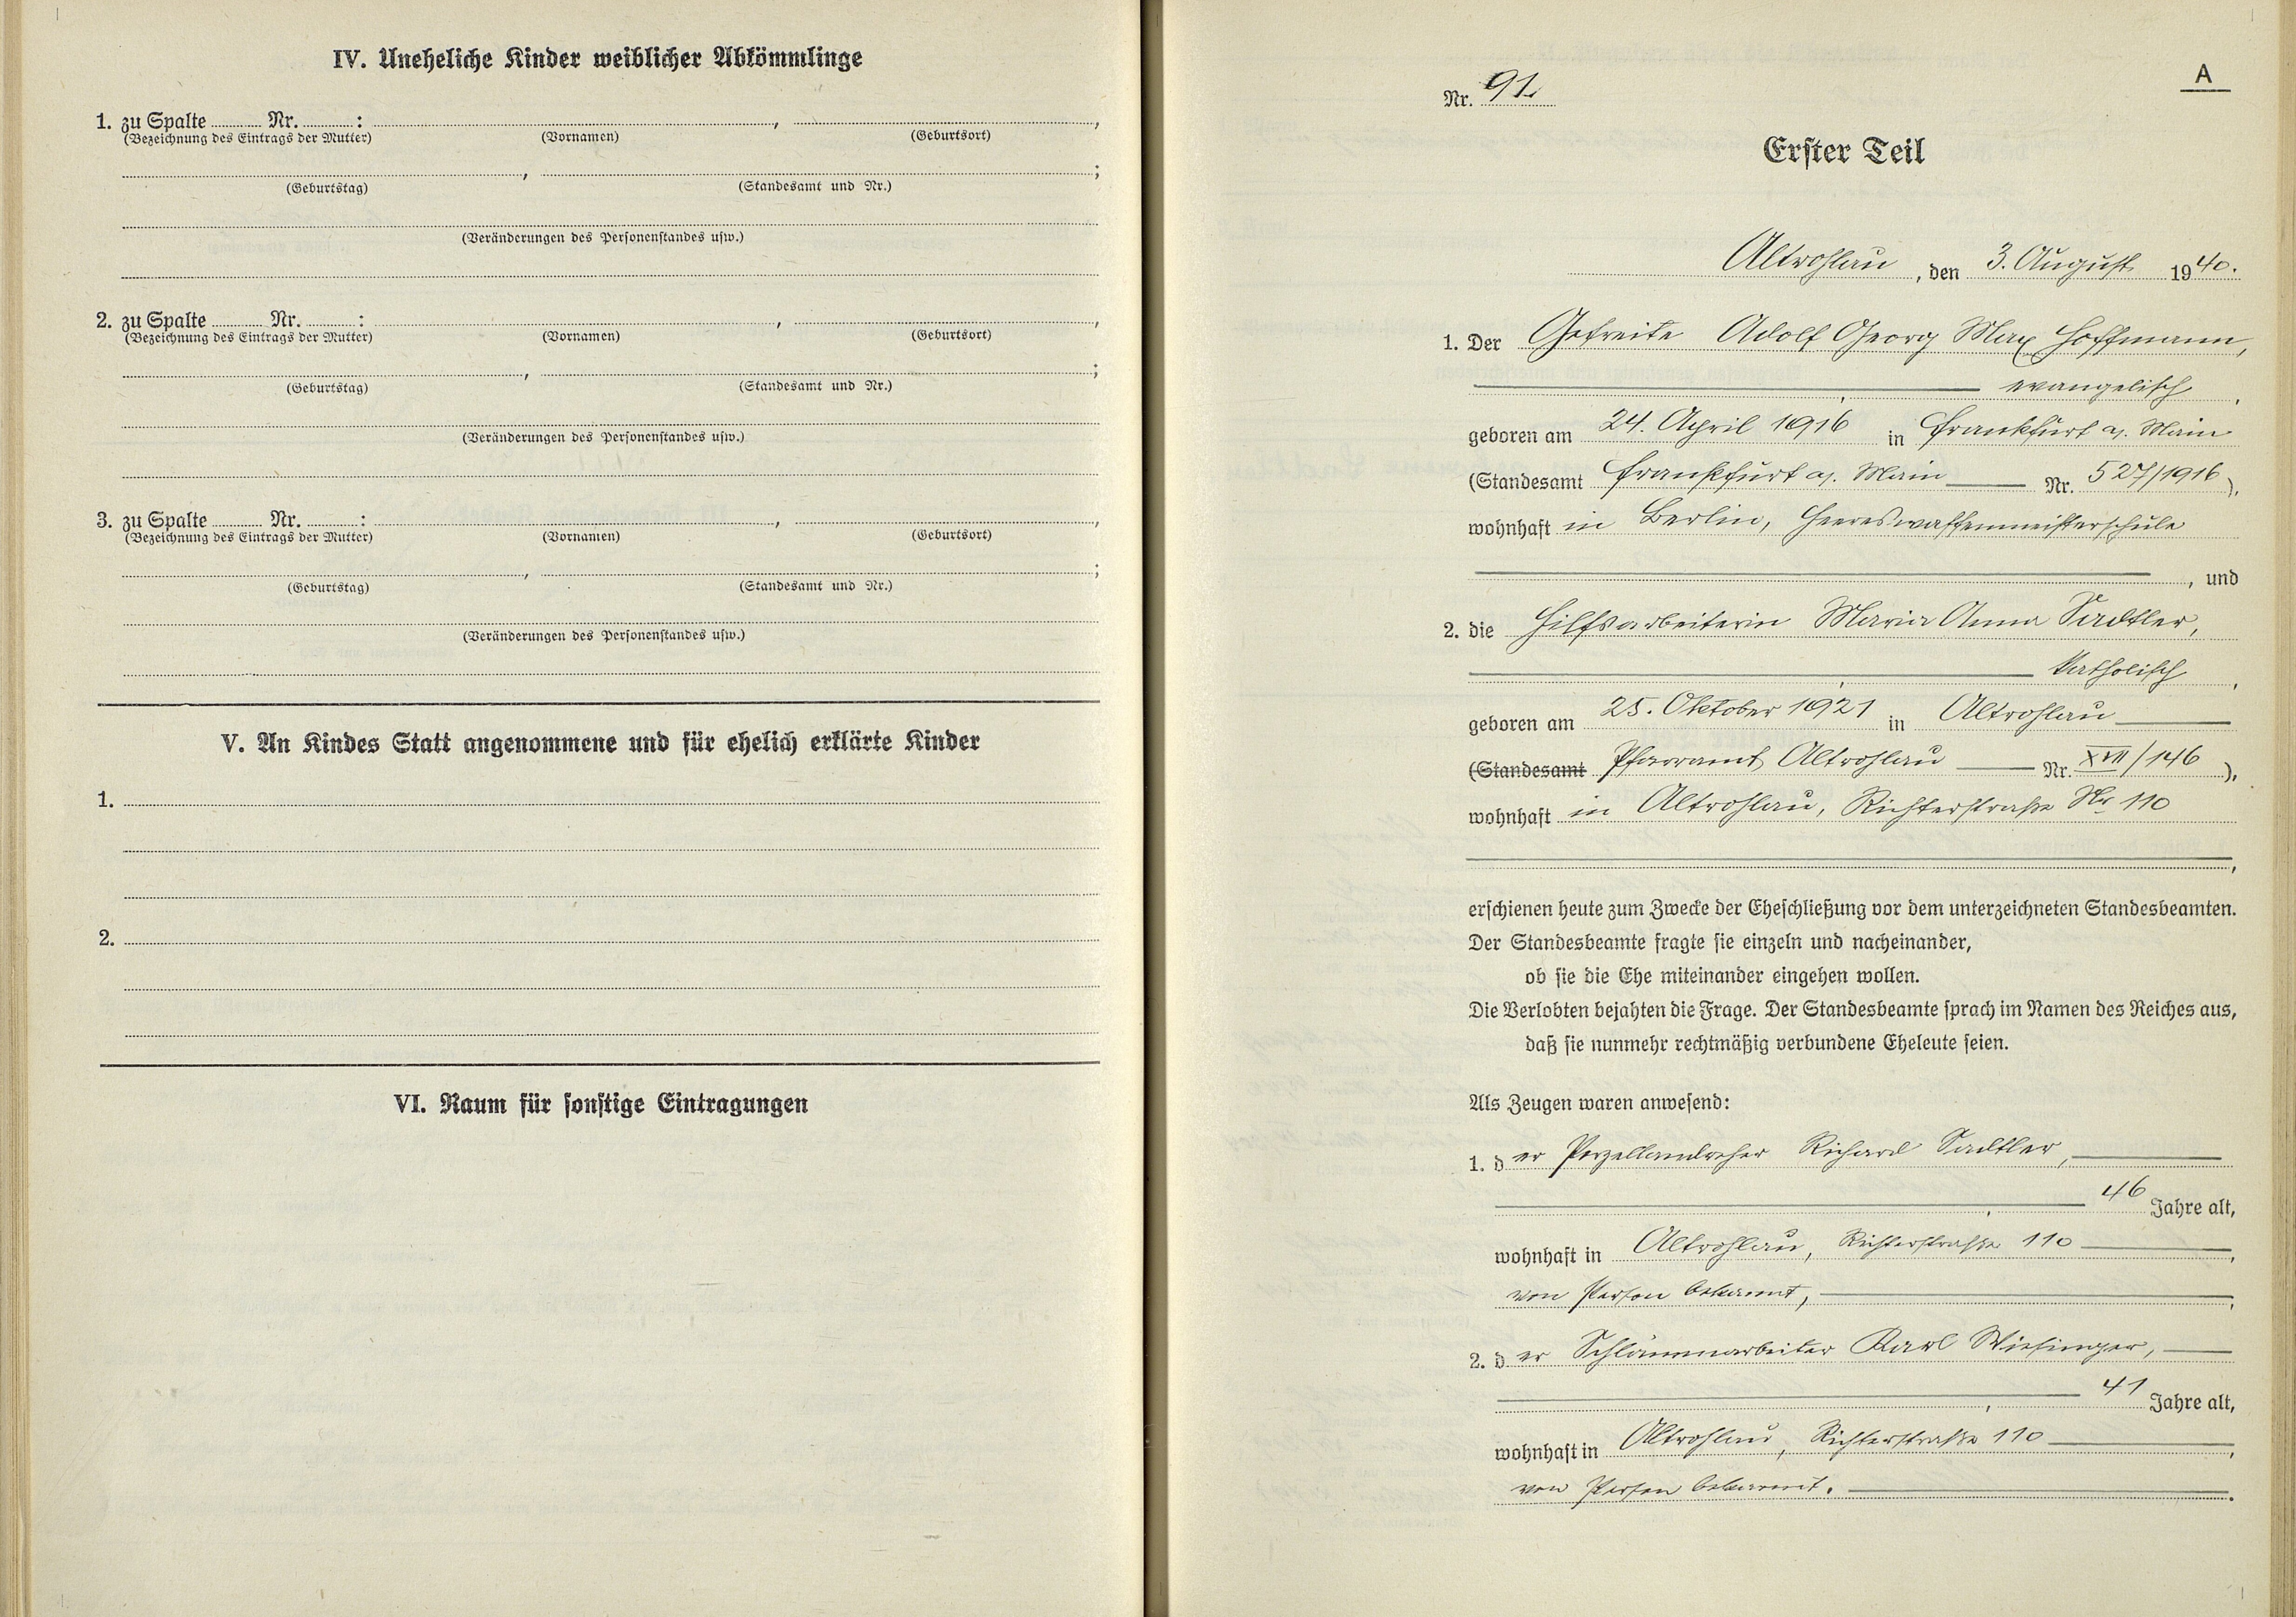 IV. Uneheliche Kinder weiblicher Abkömmlinge
1. zu Spalte ........ Nr. ........ : ........ , ........ ,
(Bezeichnung des Eintrags der Mutter) (Vornamen) (Geburtsort)
........ , ........ ;
(Geburtstag) (Standesamt und Nr.)
(Veränderungen des Personenstandes usw.)
2. zu Spalte ........ Nr. ........ : ........ , ........ ,
(Bezeichnung des Eintrags der Mutter) (Vornamen) (Geburtsort)
........ , ........ ;
(Geburtstag) (Standesamt und Nr.)
(Veränderungen des Personenstandes usw.)
3. zu Spalte ........ Nr. ........ : ........ , ........ ,
(Bezeichnung des Eintrags der Mutter) (Vornamen) (Geburtsort)
........ , ........ ;
(Geburtstag) (Standesamt und Nr.)
(Veränderungen des Personenstandes usw.)
V. An Kindes Statt angenommene und für ehelich erklärte Kinder
1.
2.
VI. Raum für sonstige Eintragungen
A
Nr. 91.
Erster Teil
Altrohlau, den 3. August 1940.
1. Der Gefreite Adolf Georg Max Hoffmann,
evangelisch,
geboren am 24. April 1916 in Frankfurt a. Main
(Standesamt Frankfurt a. Main Nr. 527/1916),
wohnhaft in Berlin, Heereswaffenmeisterschule
, und
2. die Hilfsarbeiterin Maria Anna Sadtler,
katholisch,
geboren am 25. Oktober 1921 in Altrohlau
(Standesamt Pfarramt Altrohlau Nr. XVII/146),
wohnhaft in Altrohlau, Richterstraße Nr 110
,
erschienen heute zum Zwecke der Eheschließung vor dem unterzeichneten Standesbeamten.
Der Standesbeamte fragte sie einzeln und nacheinander,
ob sie die Ehe miteinander eingehen wollen.
Die Verlobten bejahten die Frage. Der Standesbeamte sprach im Namen des Reiches aus,
daß sie nunmehr rechtmäßig verbundene Eheleute seien.
Als Zeugen waren anwesend:
1. der Porzellandreher Richard Sadtler,
46 Jahre alt,
wohnhaft in Altrohlau, Richterstraße 110,
von Person bekannt,
2. der Schlämmarbeiter Karl Wiesinger,
41 Jahre alt,
wohnhaft in Altrohlau, Richterstraße 110,
von Person bekannt.